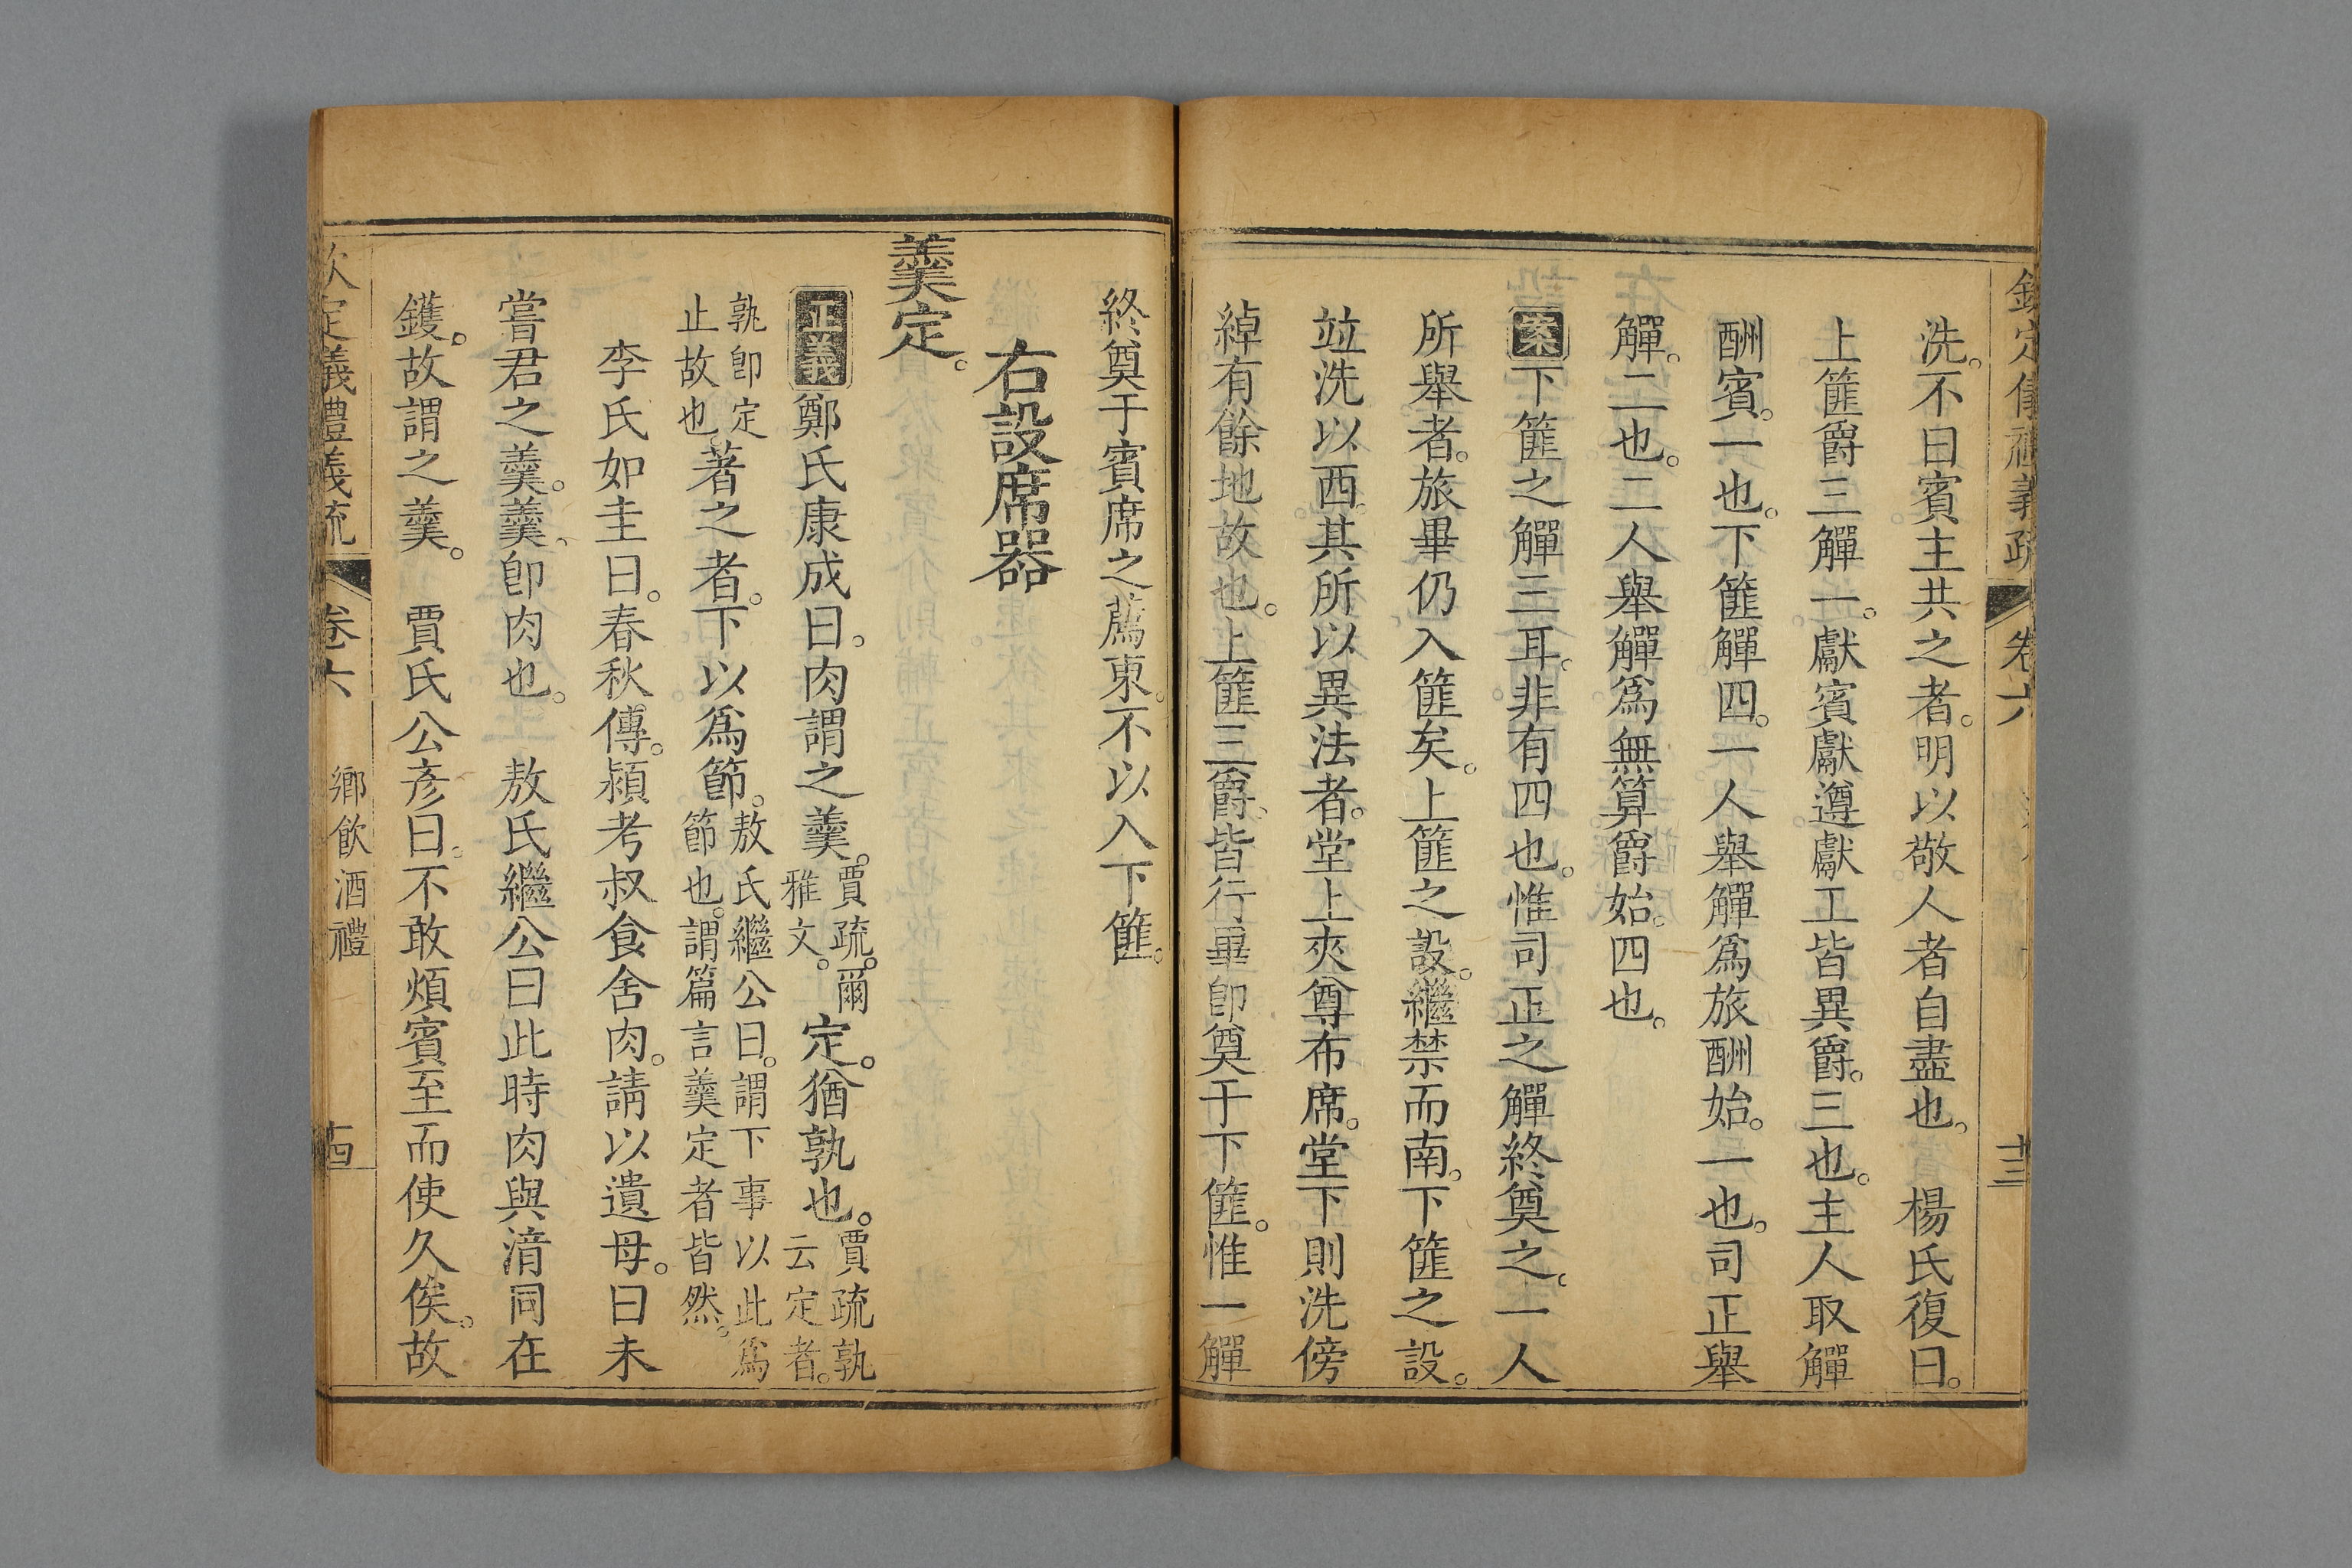 欽定儀禮義疏 卷六 十三
洗。不曰賓主共之者。明以敬人者自盡也。 楊氏復曰。
上篚爵三觶一。獻賓獻遵獻工皆異爵。三也。主人取觶
酬賓。一也。下篚觶四。一人舉觶爲旅酬始。一也。司正舉
觶。二也。二人舉觶爲無算爵始。四也。
案下篚之觶三耳。非有四也。惟司正之觶終奠之。一人
所舉者。旅畢仍入篚矣。上篚之設。繼禁而南。下篚之設。
竝洗以西。其所以異法者。堂上夾尊布席。堂下則洗傍
綽有餘地故也。上篚三爵。皆行畢卽奠于下篚。惟一觶
終奠于賓席之薦東。不以入下篚。
右設席器
羹定。
正義鄭氏康成曰。肉謂之羹。賈疏。爾雅文。定。猶孰也。賈疏孰云定者。
孰卽定止故也。著之者。下以爲節。敖氏繼公曰。謂下事以此爲節也。謂篇言羹定者皆然。
李氏如圭曰。春秋傳。潁考叔食舍肉。請以遺母。曰未
嘗君之羹。羹、卽肉也。 敖氏繼公曰此時肉與湆同在
鑊。故謂之羹。 賈氏公彥曰。不敢煩賓至而使久俟。故
欽定義禮義疏 卷六 鄉飲酒禮 十四